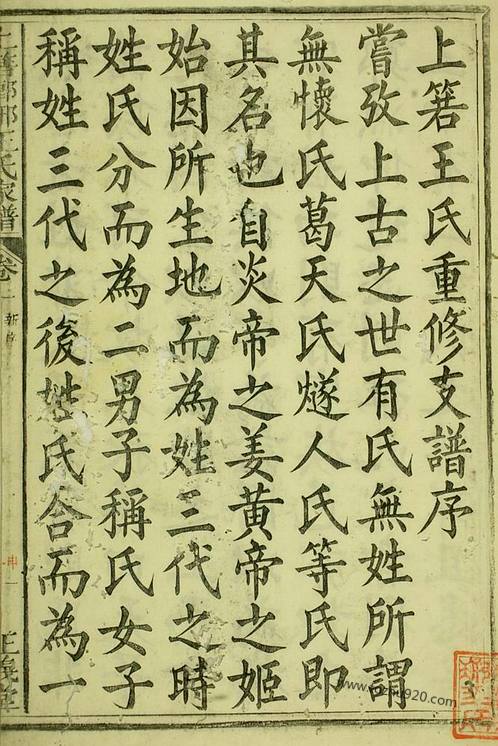 上箬王氏重修支譜序
嘗攷上古之世有氏無姓所謂
無懷氏葛天氏燧人氏等氏即
其名也自炎帝之姜黃帝之姬
始因所生地而為姓三代之時
姓氏分而為二男子稱氏女子
稱姓三代之後姓氏合而為一
王氏家譜
卷一